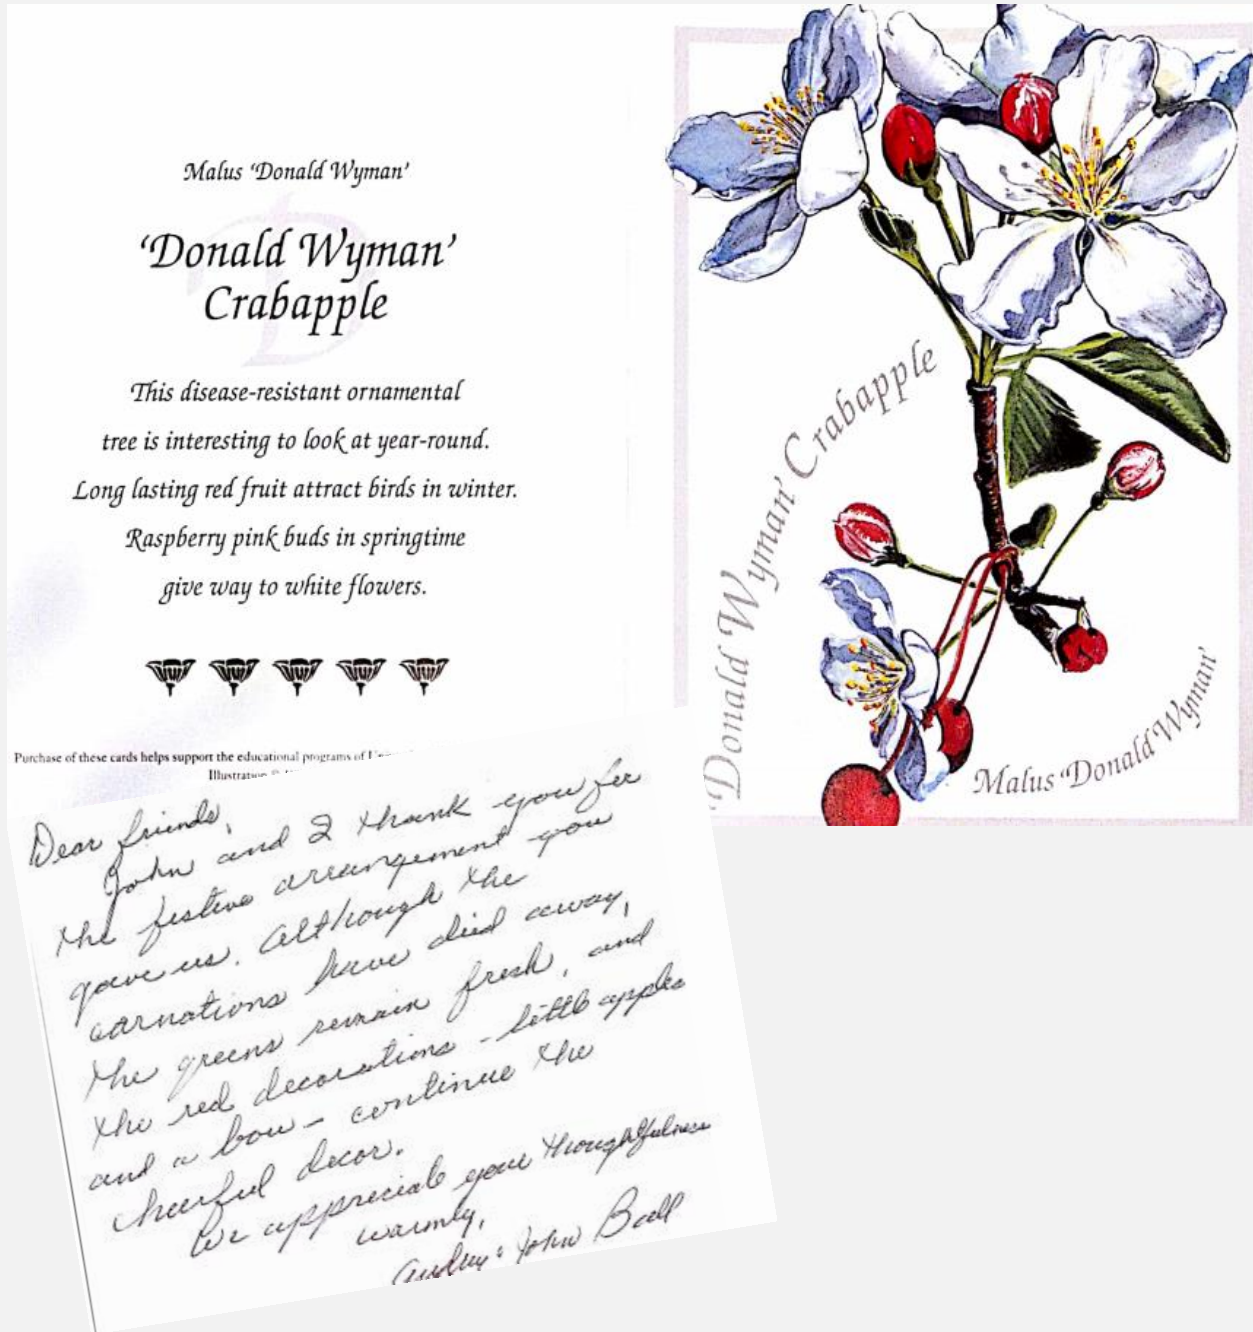 Malus ‘Donald Wyman’
‘Donald Wyman’
Crabapple
This disease-resistant ornamental
tree is interesting to look at year-round.
Long lasting red fruit attract birds in winter.
Raspberry pink buds in springtime
give way to white flowers.
Purchase of these cards helps support the educational programs of
Illustration ©
'Donald Wyman' Crabapple
Malus 'Donald Wyman'
Dear friends,
John and I thank you for
the festive arrangement you
gave us. Although the
carnations have died away,
the greens remain fresh, and
the red decorations - little apples
and a bow - continue the
cheerful decor.
We appreciate your thoughtfulness
Warmly,
John Ball